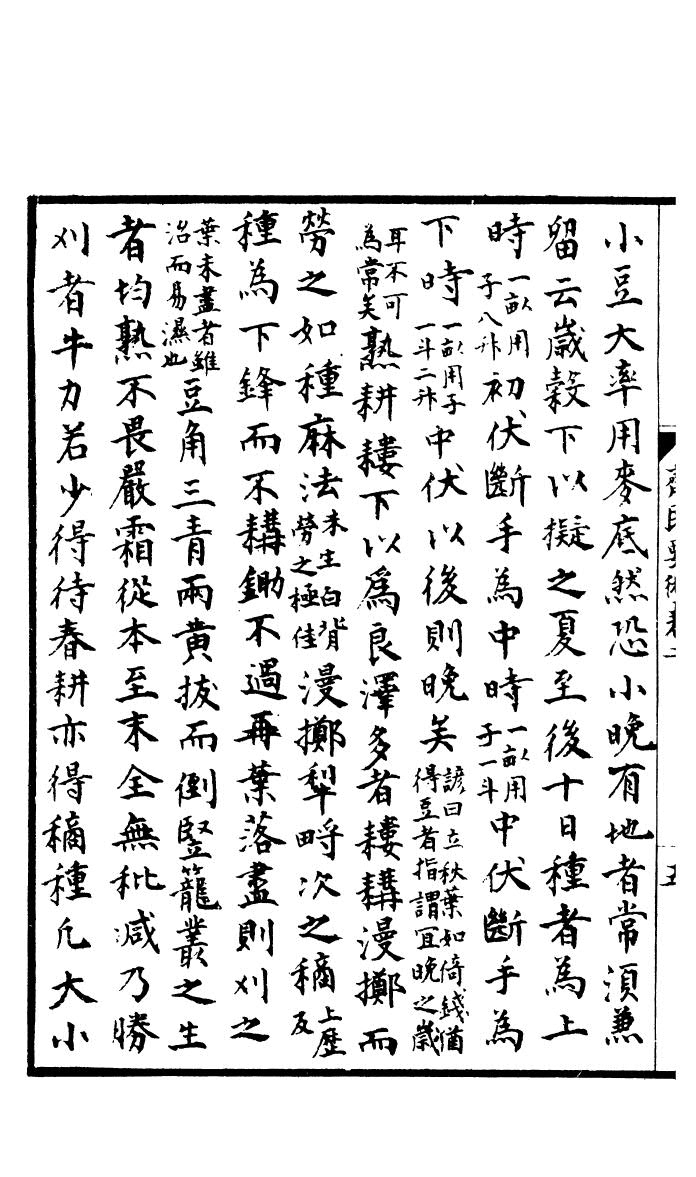 齊民要術卷二
五
小豆大率用麥底然恐小晚有地者常須兼
留去歲穀下以擬之夏至後十日種者為上
時一畝用子八升初伏斷手為中時一畝用子一斗中伏斷手為
下時一畝用子一斗二升中伏以後則晚矣諺曰立秋葉如荷錢猶得豆者指謂宜晚之歲
耳不可為常矣熟耕耬下以為良澤多者耬耩漫擲而
勞之如種麻法未生白背勞之極佳漫擲犁㽟次之稿上歷反
種為下鋒而不耩鋤不過再葉落盡則刈之
葉未盡者雖治而易濕也豆角三青兩黃拔而倒竪籠叢之生
者均熟不畏嚴霜從本至末全無秕減乃勝
刈者牛力若少得待春耕亦得稿種凡大小